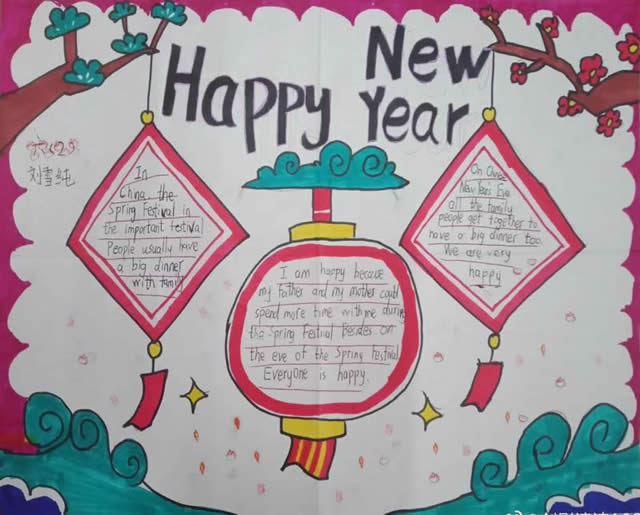 Happy New Year
刘雪纯
In
China, the
Spring Festival in
the important festival
People usually have
a big dinner
with family
I am happy because
my father and my mother could
spend more time with me during
the Spring Festival Besides on
the eve of the Spring Festival
Everyone is happy.
On Chinese
New Year's Eve
all the family
people get together to
have a big dinner too.
We are very
happy